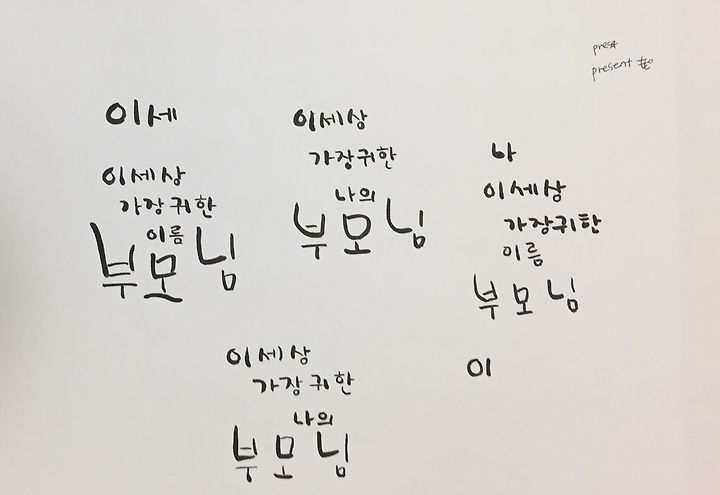 이세
이세상
가장귀한
이름
부모님
이세상
가장귀한
나의
부모님
나
이세상
가장귀한
이름
부모님
이세상
가장귀한
나의
부모님
이
present